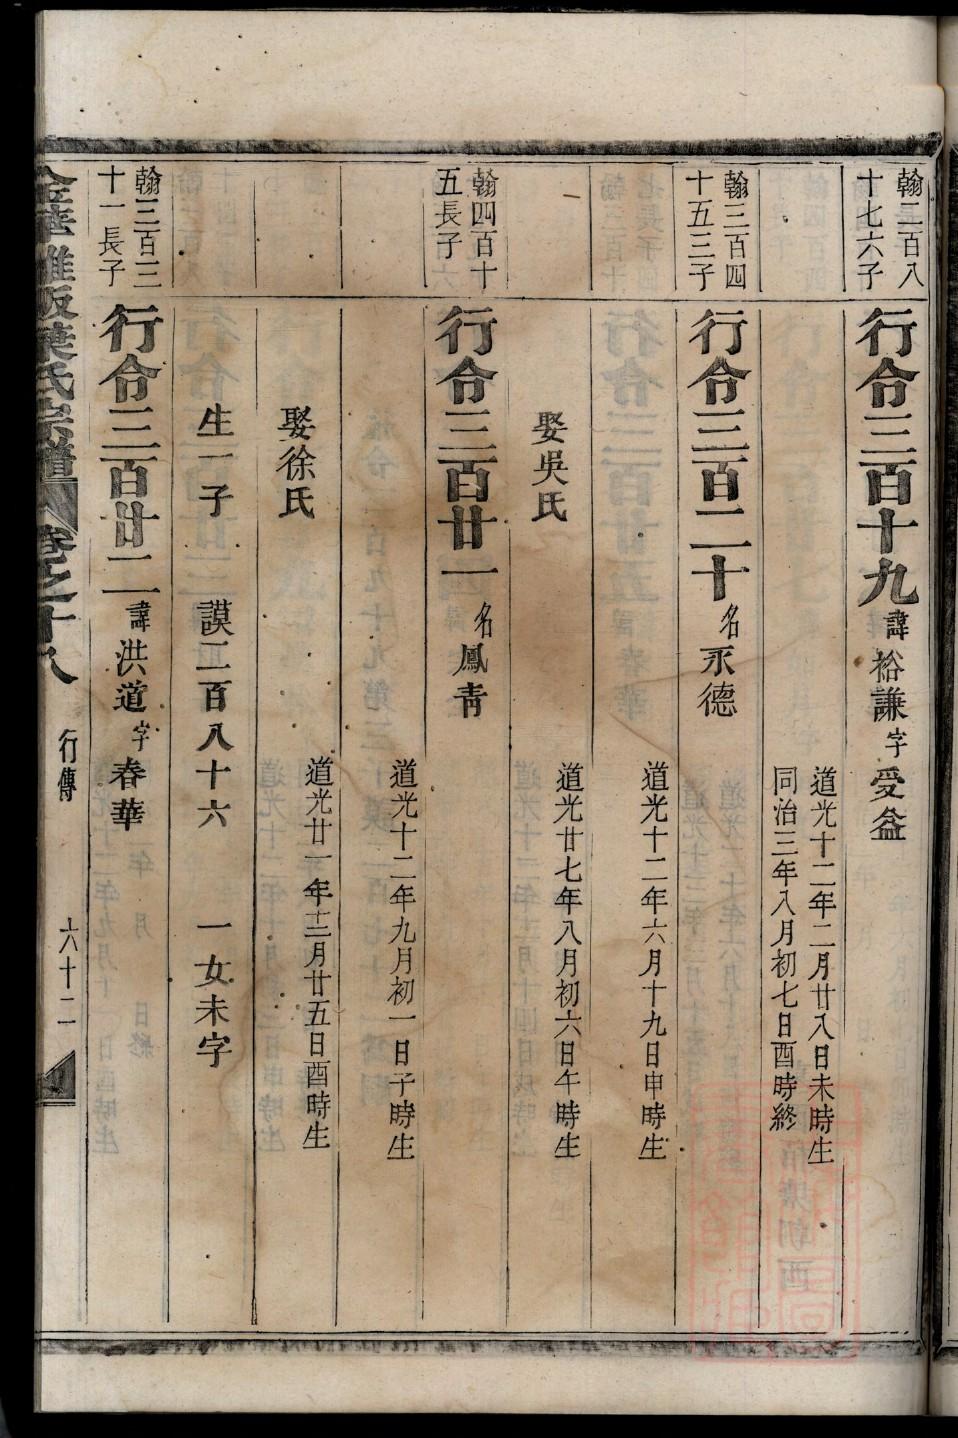 翰三百八
十七六子
行令三百十九諱裕謙字受益
道光十二年二月廿八日未時生
同治三年八月初七日酉時終
翰三百四
十五三子
行令三百二十名永德
道光十二年六月十九日申時生
娶吳氏
道光廿七年八月初六日午時生
翰四百十
五長子
行令三百廿一名鳳青
道光十二年九月初一日子時生
娶徐氏
道光廿一年十二月廿五日酉時生
生一子 謨二百八十六 一女未字
翰三百三
十一長子
行令三百廿二諱洪道字春華
葉氏宗譜 卷之十八 行傳 六十二